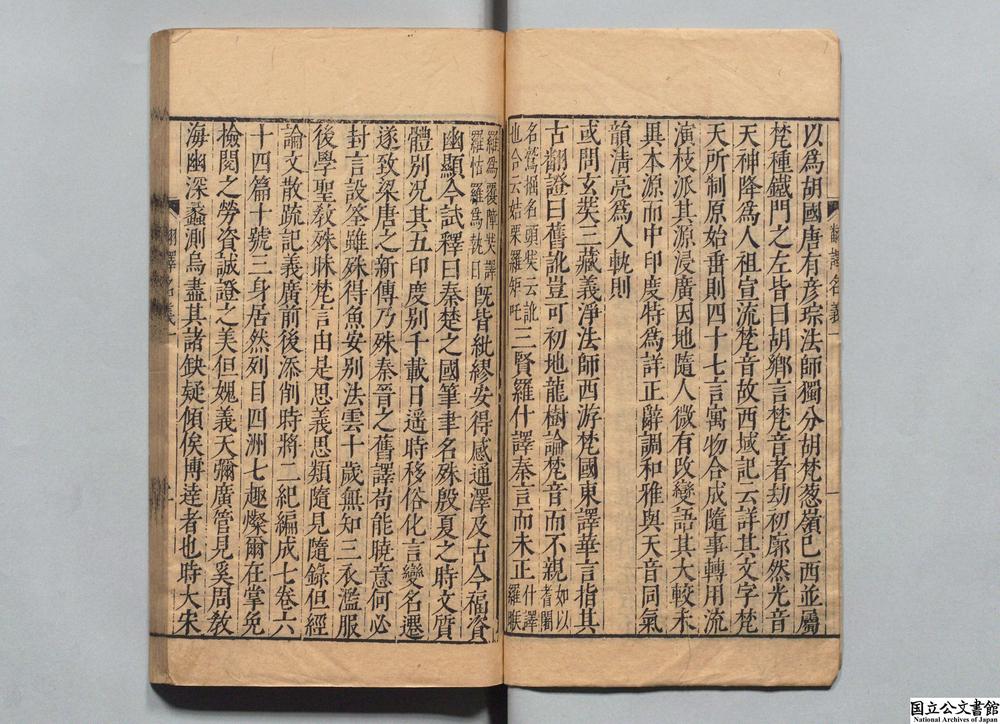 以爲胡國唐有彥琮法師獨分胡梵葱嶺已西並屬
梵種鐵門之左皆曰胡鄉言梵音者劫初廓然光音
天神降爲人祖宣流梵音故西域記云詳其文字梵
天所制原始垂則四十七言寓物合成隨事轉用流
演枝派其源浸廣因地隨人微有改變語其大較未
異本源而中印度特爲詳正辭調和雅與天音同氣
韻清亮爲人軌則
或問玄奘三藏義淨法師西游梵國東譯華言指其
古翻證曰舊訛豈可初地龍樹論梵音而不親如以耆闍
名鷲掘名頭奘云訛也今云姞栗羅矩吒三賢羅什譯秦言而未正什譯羅睺
羅爲覆障奘譯羅怙羅爲執日旣皆紕繆安得感通澤及古今福資
幽顯今試釋曰秦楚之國筆聿名殊殷夏之時文質
體別況其五印度別千載日遥時移俗化言變名遷
遂致梁唐之新傳乃殊秦晉之舊譯苟能曉意何必
封言設筌雖殊得魚安別法雲十歲無知三衣濫服
後學聖教殊昧梵言由是思義思類隨見隨錄但經
論文散疏記義廣前後添削時將二紀編成七卷六
十四篇十號三身居然列目四洲七趣燦爾在掌免
檢閱之勞資誠證之美但媿義天彌廣管見奚周教
海幽深蠡測焉盡其諸缺疑傾俟博達者也時大宋
翻譯名義一
翻譯名義一
国立公文書館
National Archives of Japan